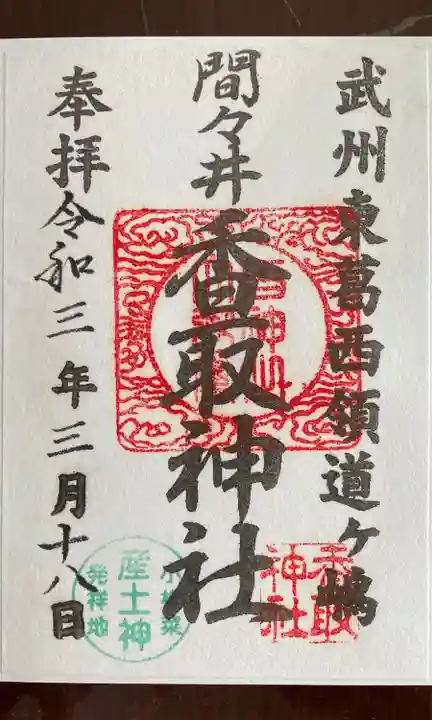 武州東葛西領道ヶ嶋
間々井
香取神社
奉拝令和三年三月十八日
香取神社
小松菜
産土神
発祥地